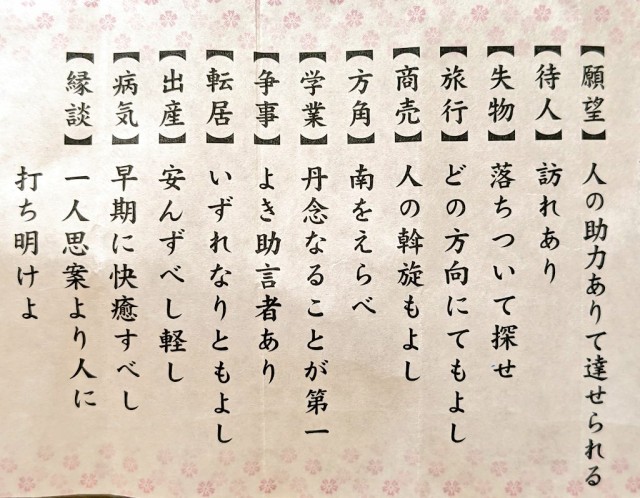 【願望】人の助力ありて達せられる
【待人】訪れあり
【失物】落ちついて探せ
【旅行】どの方向にてもよし
【商売】人の斡旋もよし
【方角】南をえらべ
【学業】丹念なることが第一
【争事】よき助言者あり
【転居】いずれなりともよし
【出産】安んずべし軽し
【病気】早期に快癒すべし
【縁談】一人思案より人に
打ち明けよ